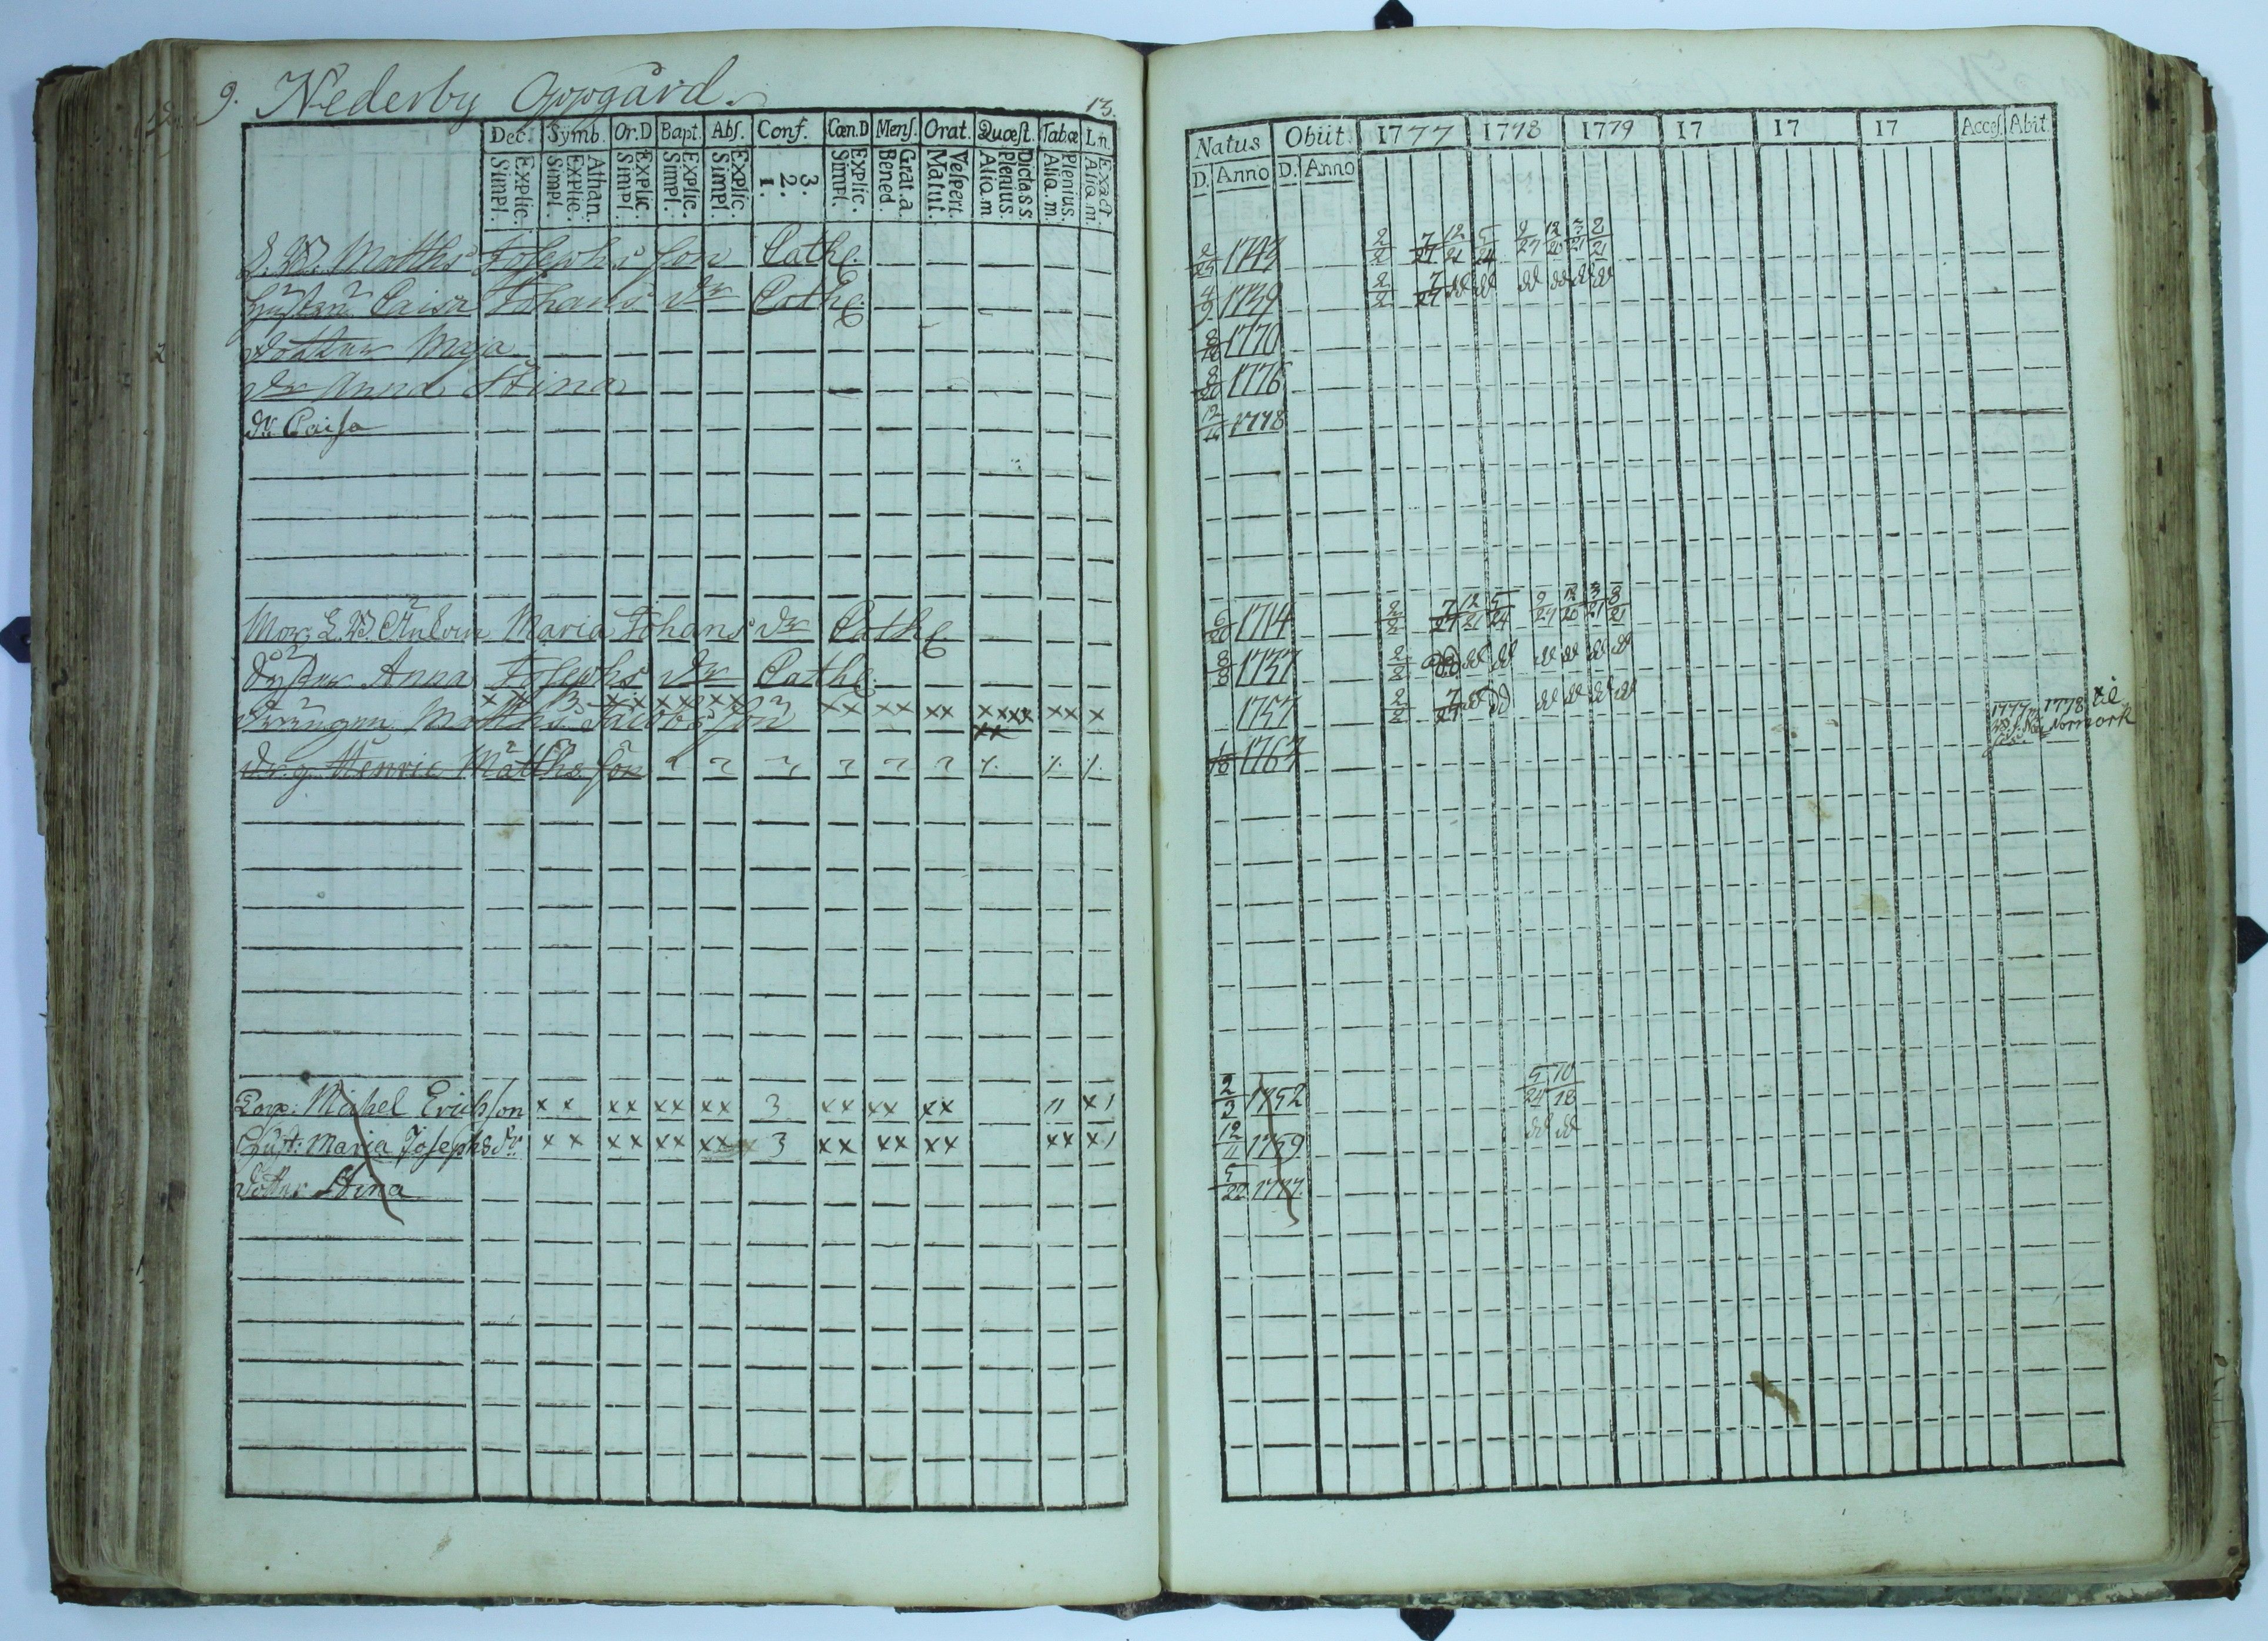 9. Nederby Oppgård.
13.
Dec. Symb. Or.D Bapt. Abſ. Conf. Cœn.D Menſ. Orat. Quœſt. Tabœ L.n.
Explic. Simpl. Athan. Explic. Simpl. Explic. Simpl. Explic. Simpl. Explic. Simpl. 3. 2. 1. Explic. Simpl. Grat.a. Bened. Veſpert. Matut. Dicta.s.s. Plenius. Aliq.m Plenius. Aliq.m. Exact. Aliq.m.
Matths Josephs son Cathe
Hustru Caisa Johans dr Cathe
dotter Maja
dr Anna Stina
dr. Caiſa
Mor Enkan Maria Johans dr Cathe
Syster Anna Josephs dr Cathe
x x 3 x x x x x x
Drängen Matths Jacobs son xx xx xx xxxx xx x
xx
dr.g Henric Matths son
Michel Erichſon x x xx xx xx 3 xx xx xx 11 x 1
Huſt: Maria Joſephs dr. x x xx xx xx 3 xx xx xx xx x 1
dotter Stina
Natus Obiit. 1777 1778 1779 17 17 17 Acceſ. Abit.
D. Anno D. Anno
1744 2/2 7/27 12/21 5/24 9/27 12/20 3/21 8/21
4/9 1739 2/2 7/27 dd dd dd dd dd dd
1770
8/20 1776
1778
6/20 1714 2/2 7/27 12/21 5/24 9/27 12/20 3/21 8/21
8/8 1737 2/2 dd dd dd dd dd dd
1757 2/2 7/27 dd dd dd dd dd dd 1777 1778 til
Normork
1767
2/3 1752 5/24 10/18
12/4 1759 dd dd
5/22 1777.